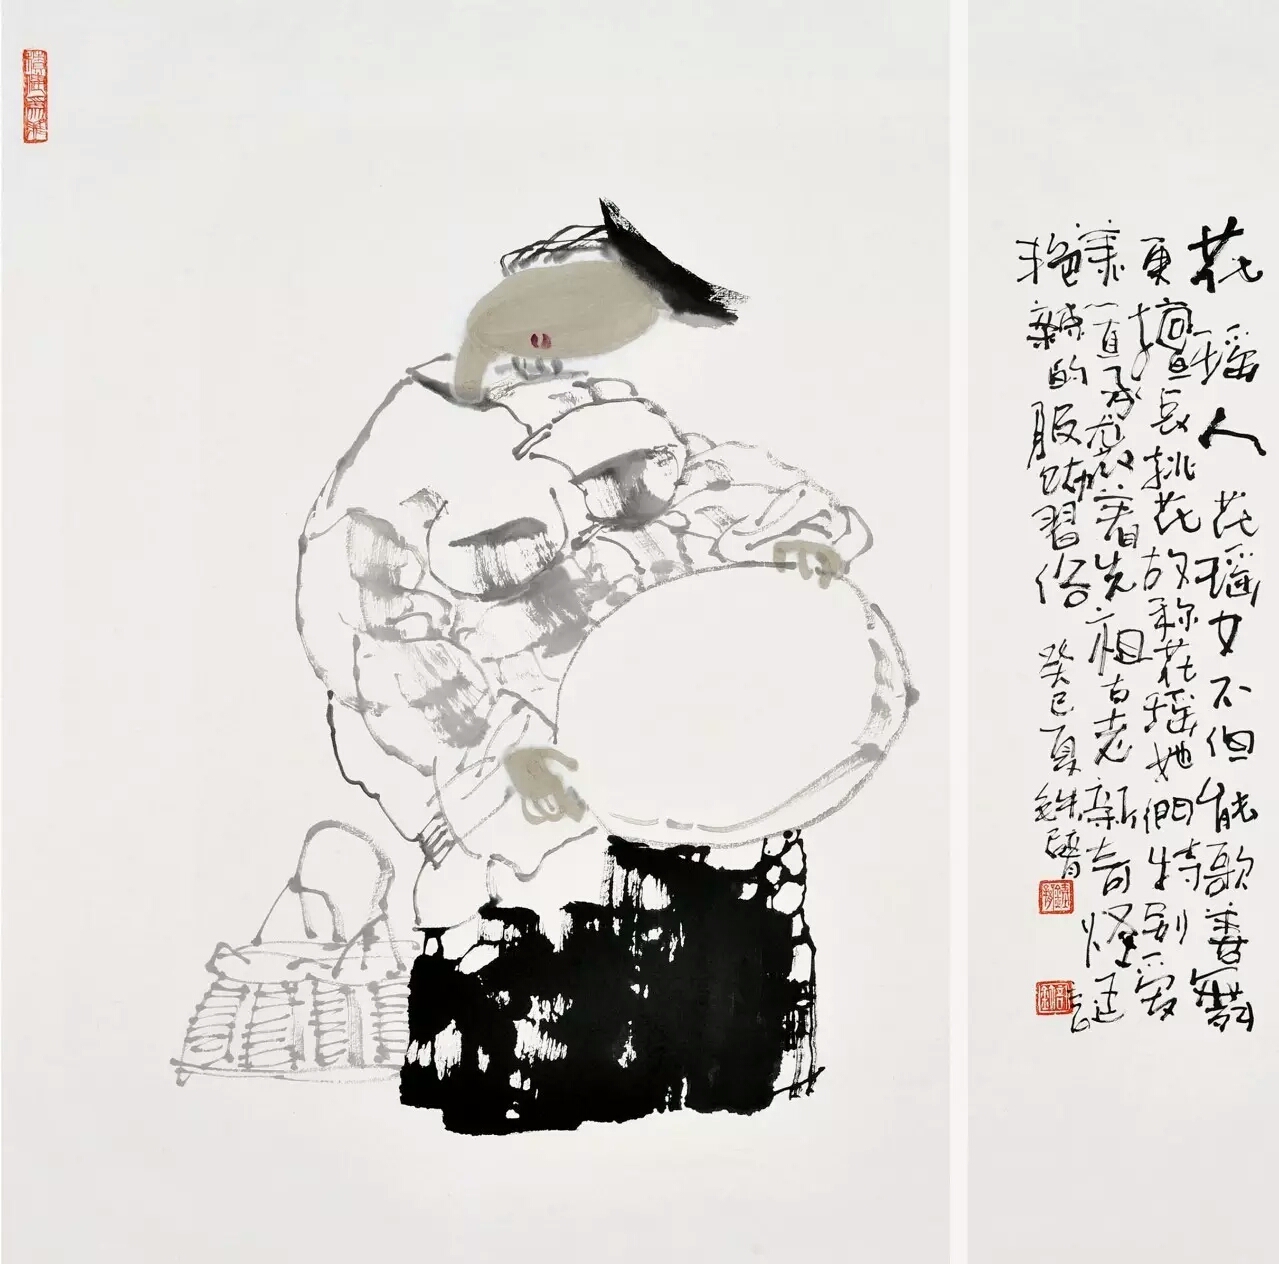 花瑶人 花瑶女不但能歌善舞
更擅長挑花故称花瑶她們特别爱
美一直承袭着先祖古老新奇怪诞
的服饰習俗 癸巳夏